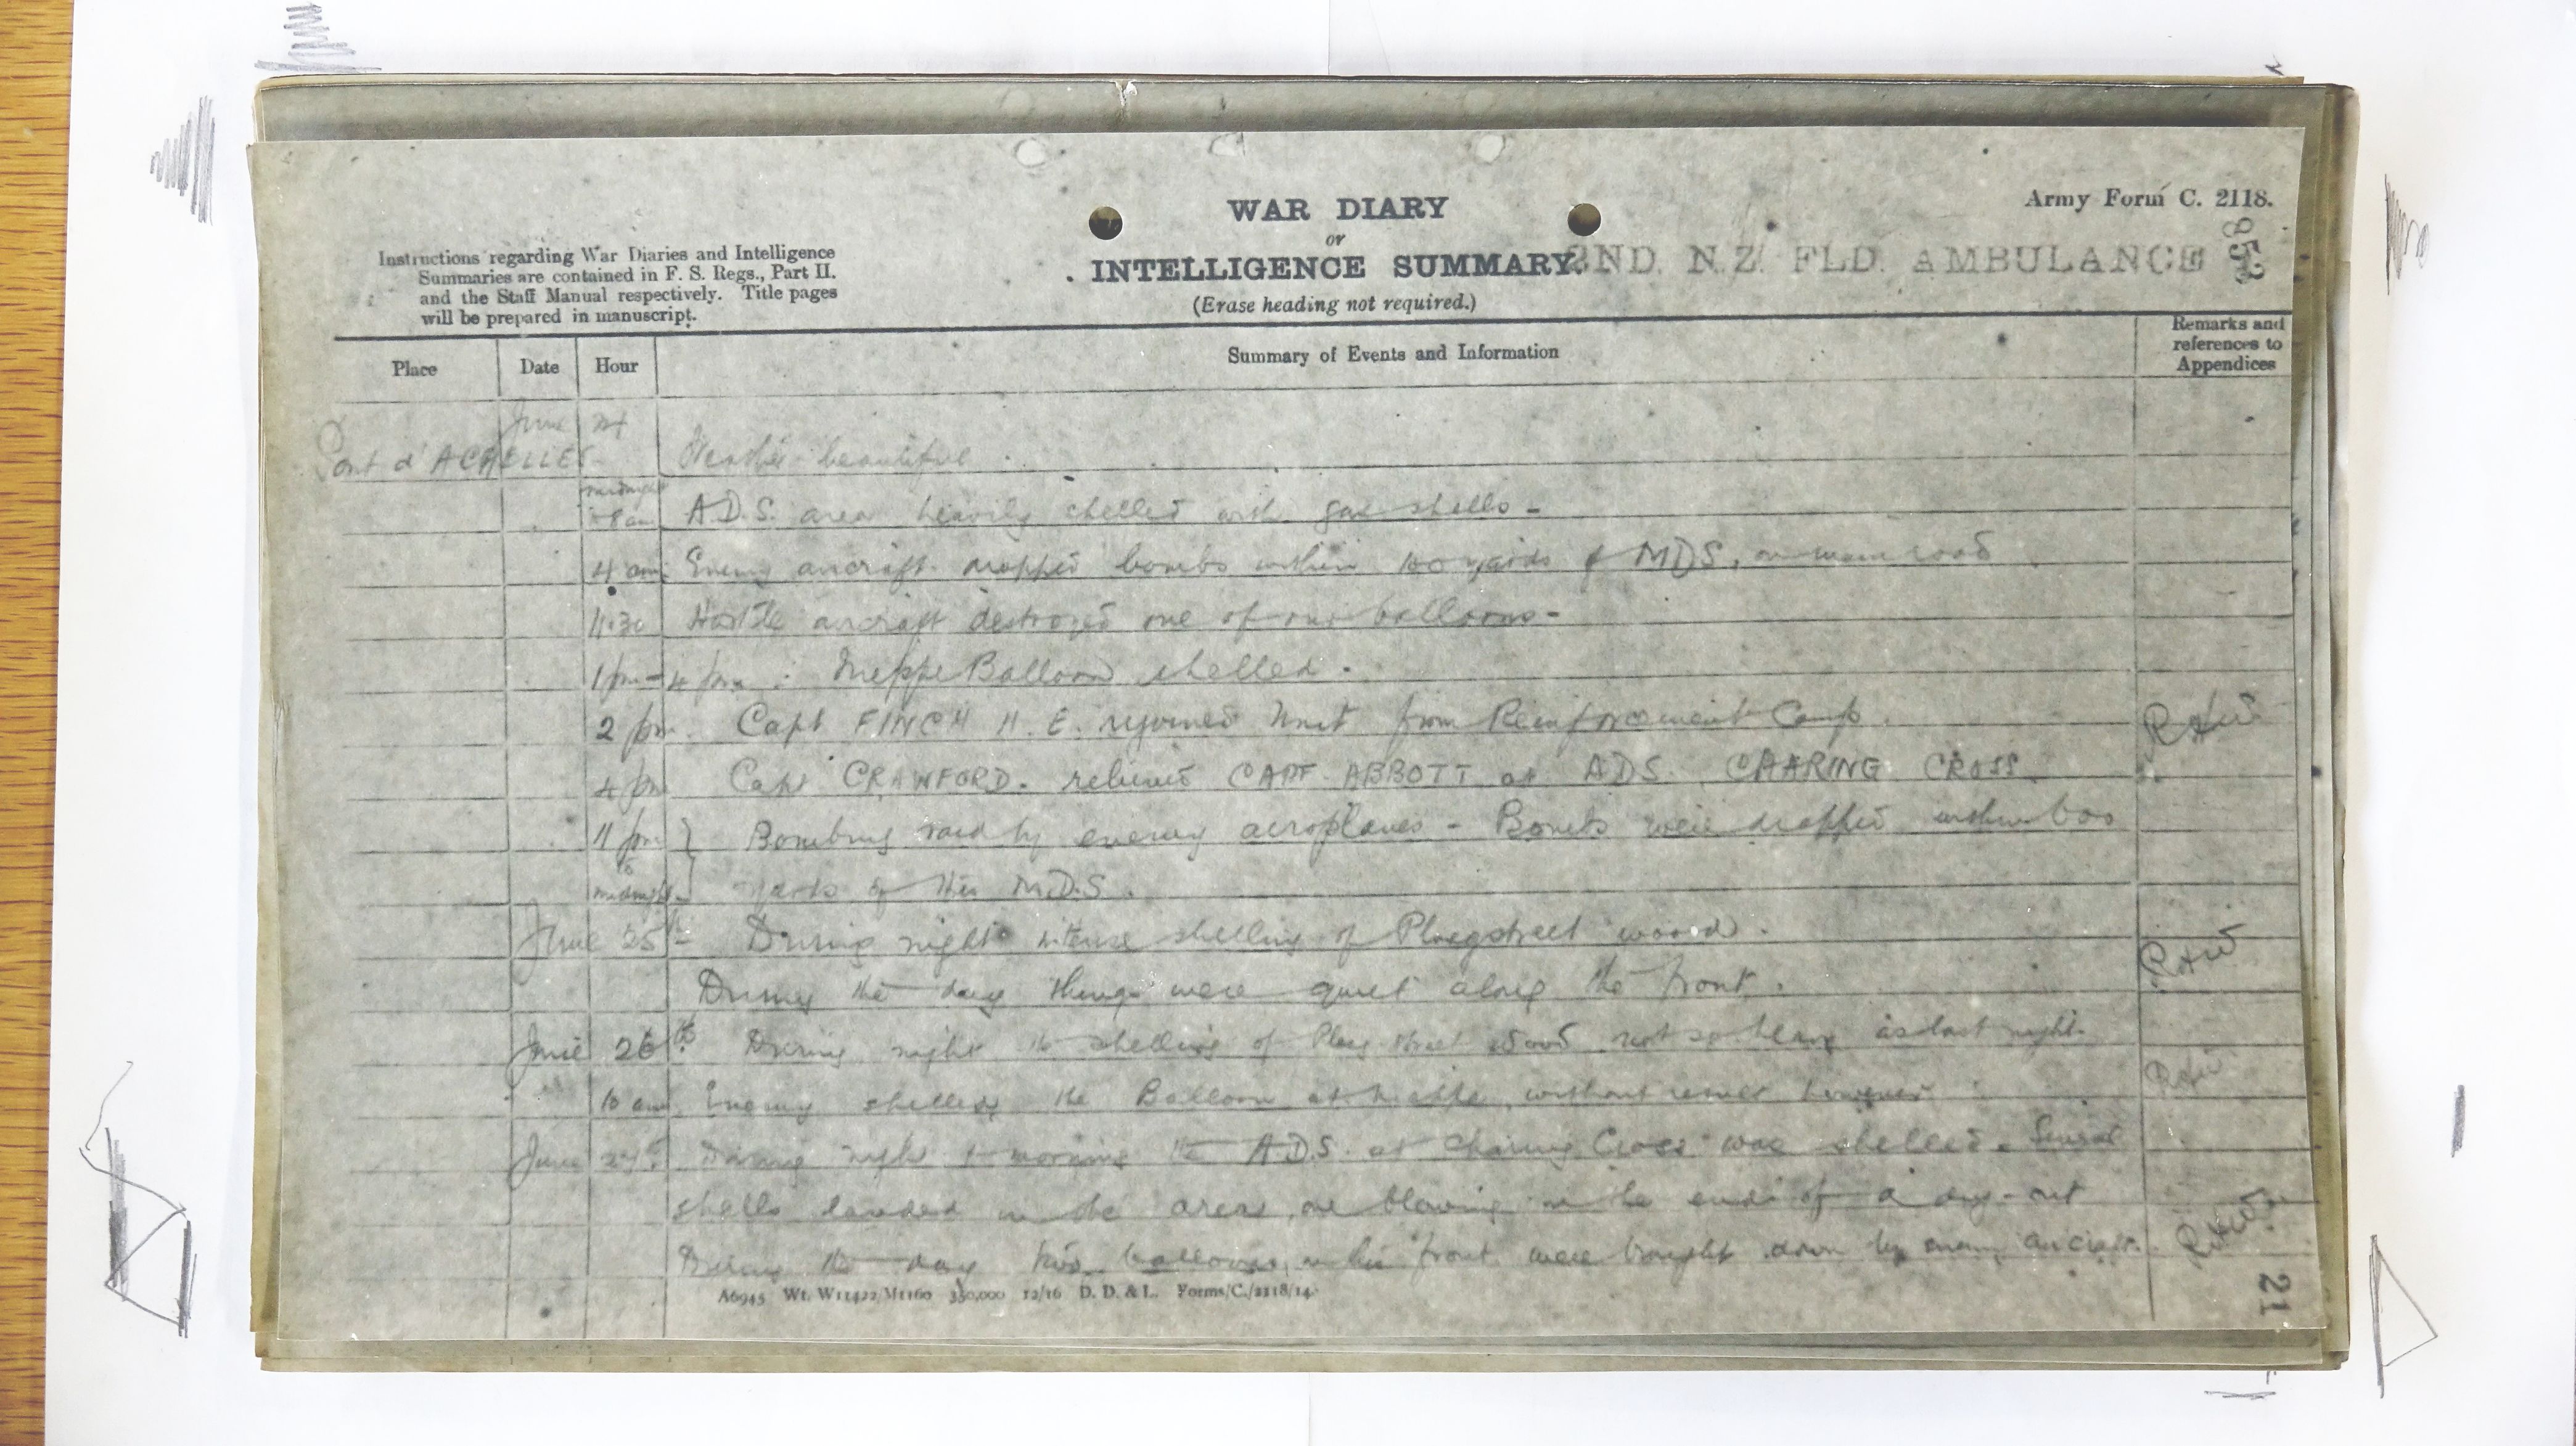 Army Form C. 2118.
WAR DIARY
or
INTELLIGENCE SUMMARY.
(Erase heading not required.)
2ND N.Z. FLD. AMBULANCE
953
Instructions regarding War Diaries and Intelligence
Summaries are contained in F. S. Regs., Part II.
and the Staff Manual respectively. Title pages
will be prepared in manuscript.
Place Date Hour Summary of Events and Information Remarks and references to Appendices
June 24
Pont d'ACHELLES Weather beautiful.
midnight
A.D.S. area heavily shelled with gas shells -
4 am Enemy aircraft dropped bombs within 100 yards of MDS, on main road.
11.30 Hostile aircraft destroyed one of our balloons -
1 pm - 4 pm : Nieppe Balloon shelled.
2 pm. Capt FINCH H. E. rejoined Unit from Reinforcement Camp.
4 pm Capt CRAWFORD. relieved CAPT. ABBOTT at ADS. CHARING CROSS.
11 pm } Bombing raid by enemy aeroplanes - Bombs were dropped within 600
to midnight } yards of this M.D.S.
June 25th During night intense shelling of Ploegstreet wood.
During the day things were quiet along the front.
June 26th During night the shelling of Ploeg street Wood not so heavy as last night.
10 am. Enemy shelled the Balloon at Nieppe, without result however.
June 27th During night & morning the A.D.S. at Charing Cross was shelled. Several
shells landed in the area, one blowing in the end of a dug-out
During the day two balloons on his front were brought down by enemy aircraft.
A6945 Wt. W11422/M1160 350,000 12/16 D. D. & L. Forms/C./2118/14.
21